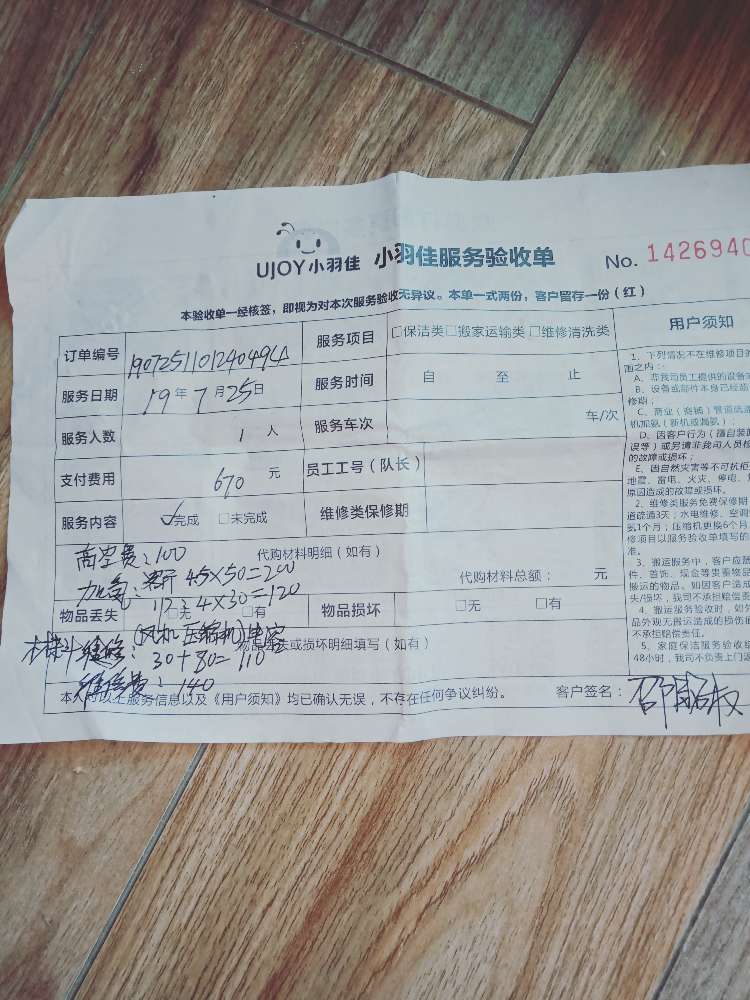 UJOY小羽佳 小羽佳服务验收单 No. 1426940
本验收单一经核签，即视为对本次服务验收无异议。本单一式两份，客户留存一份（红）
订单编号 服务项目 □保洁类□搬家运输类□维修清洗类
服务日期 19年7月25日 服务时间 自 至 止
服务人数 1人 服务车次 车/次
支付费用 670元 员工工号（队长）
服务内容 ☑完成 □未完成 维修类保修期
高空费：100 代购材料明细（如有）
加氟： 45X50=200 代购材料总额： 元
4X30=120
物品丢失 □无 □有 物品损坏 □无 □有
材料 (风机 压缩机) 电容 或损坏明细填写（如有）
30+80=110
维修费：140
本人对以上服务信息以及《用户须知》均已确认无误，不存在任何争议纠纷。 客户签名：
用户须知
1、下列情况不在维修项目
面之内：
A、非我司员工提供的设备
B、设备或部件本身已经
修期；
C、商业（商铺）管道疏
机加氟（新机或漏氟）；
D、因客户行为（擅自装
误等）或另请非我司人员
的故障或损坏；
E、因自然灾害等不可抗
地震、雷电、火灾、停电、
原因造成的故障或损坏。
2、维修类服务免费保修期
道疏通3天；水电维修、空调
氟1个月；压缩机更换6个月
修项目以服务验收单填写的
准。
3、搬运服务中，客户应
件、首饰、现金等贵重物品
搬运的物品。如因客户造成
失/损坏，我司不承担赔偿责
4、搬运服务验收时，如
品外观无搬运造成的损伤
不承担赔偿责任。
5、家庭保洁服务验收
48小时，我司不负责上门